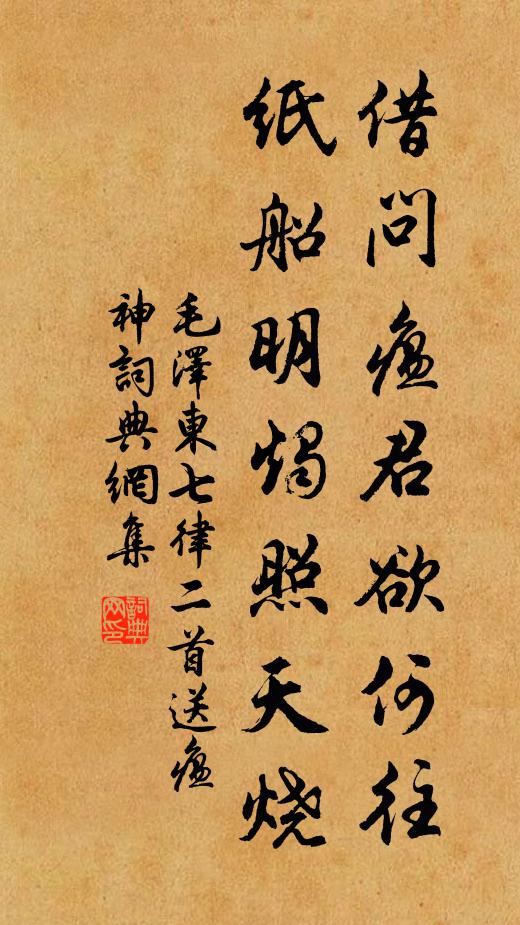 借问瘟君欲何往
纸船明烛照天烧
毛澤東七律二首送瘟
神詞典網集
詞典
网印